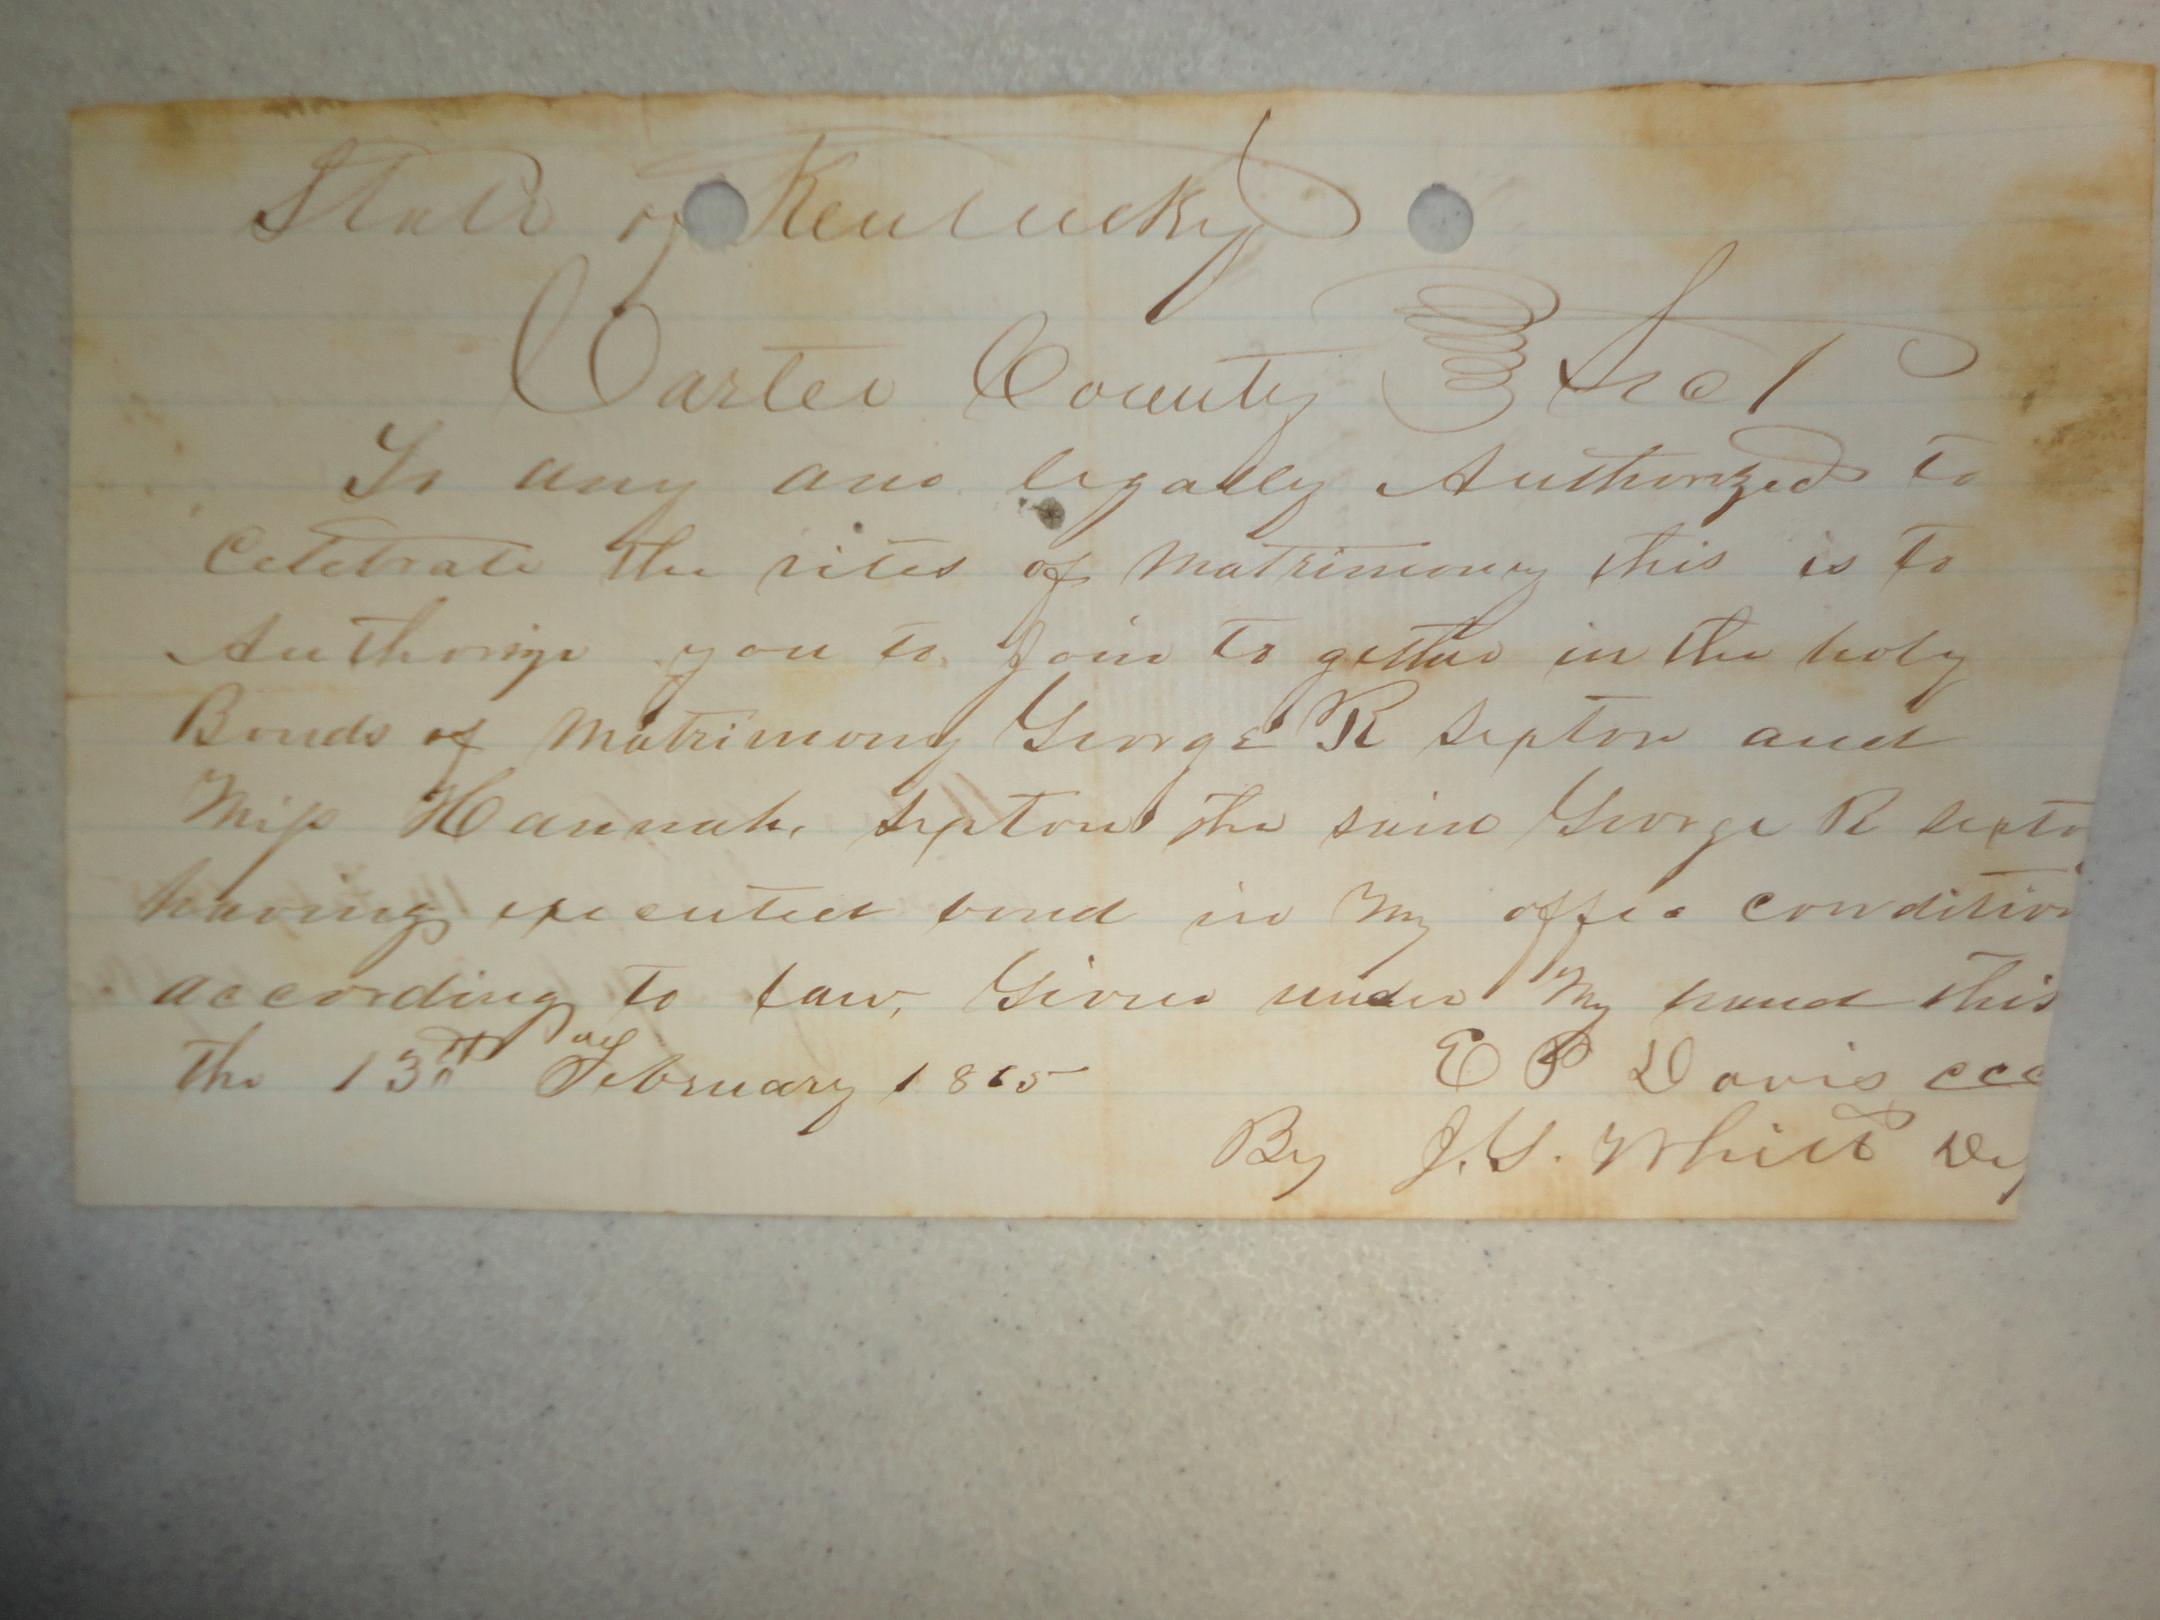 State of Kentucky
Carter County Sct
To any one legally Authorized to
Celebrate the rites of Matrimony this is to
Authorize you to Join to gether in the holy
Bonds of Matrimony George R Sexton and
Miss Hannah Sexton the said George R Sexto
having executed bond in My office condition
according to law, Given under My hand this
the 13th of February 1865
E P Davis CCC
By J. S. Whitt Dep